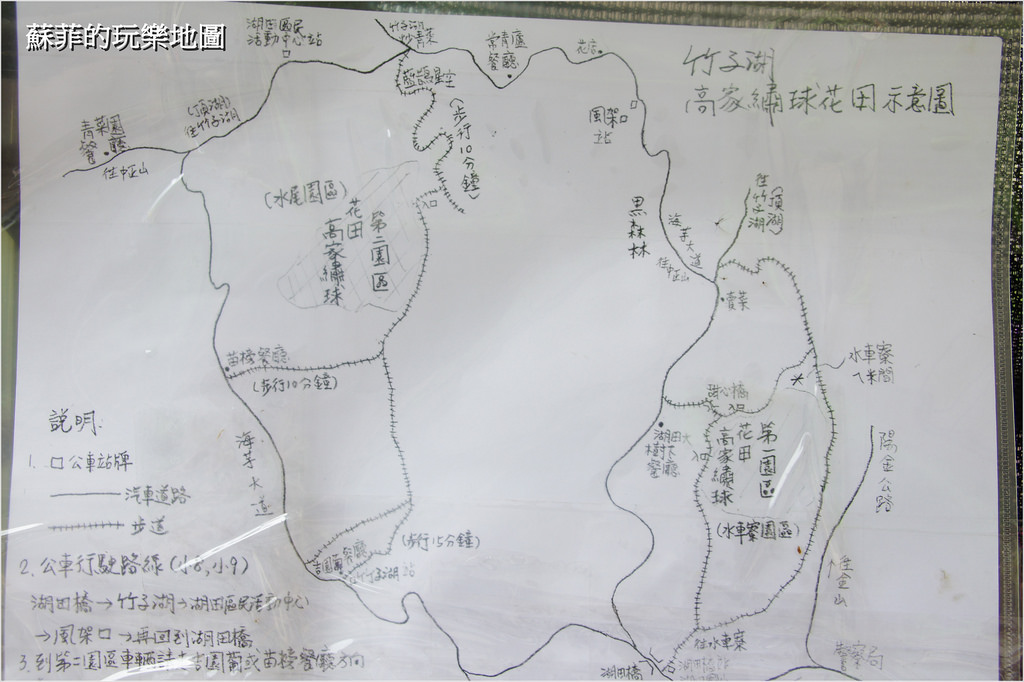 蘇菲的玩樂地圖
竹子湖
高家繡球花田示意圖
湖田區民
活動中心站
竹子湖
炒青菜
藍鵲星空
(步行10分鐘)
常青廬
餐廳
花店
風架口
站
青菜園
餐廳
往中正山
(頂湖)
往竹子湖
(水尾園區)
第二園區
花田
高家繡球
入口
黑森林
海芋大道
往中正山
(頂湖)
往竹子湖
賣菜
苗榜餐廳
(步行10分鐘)
水車寮
甜心橋
入口
湖田大
樹下
餐廳
入口
第一園區
花田
高家繡球
(水車寮園區)
陽金公路
往金山
警察局
往水車寮
湖田橋
海芋大道
吉園圃餐廳
竹子湖站
(步行15分鐘)
說明:
1. 公車站牌
汽車道路
步道
2. 公車行駛路線(小8,小9)
湖田橋→竹子湖→湖田區民活動中心
→風架口→再回到湖田橋
3. 到第二園區車輛請走吉園圃或苗榜餐廳方向